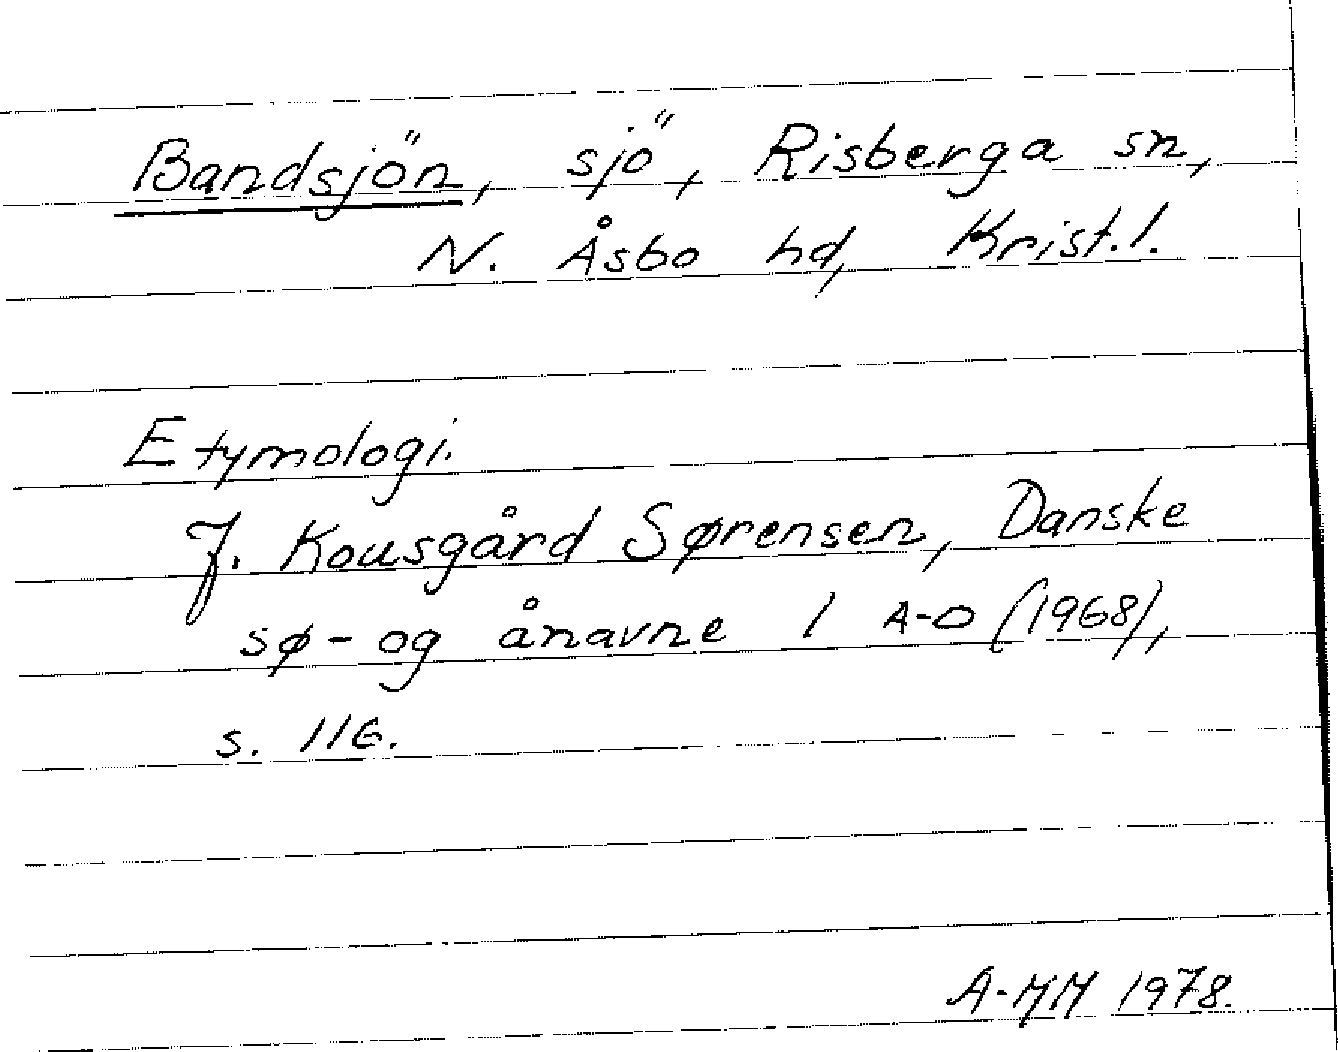 Bandsjön, sjö, Risberga sn,
N. Åsbo hd, Krist. l.
Etymologi.
J. Kousgård Sørensen, Danske
sø- og ånavne 1 A-D (1968),
s. 116.
A-MM 1978.